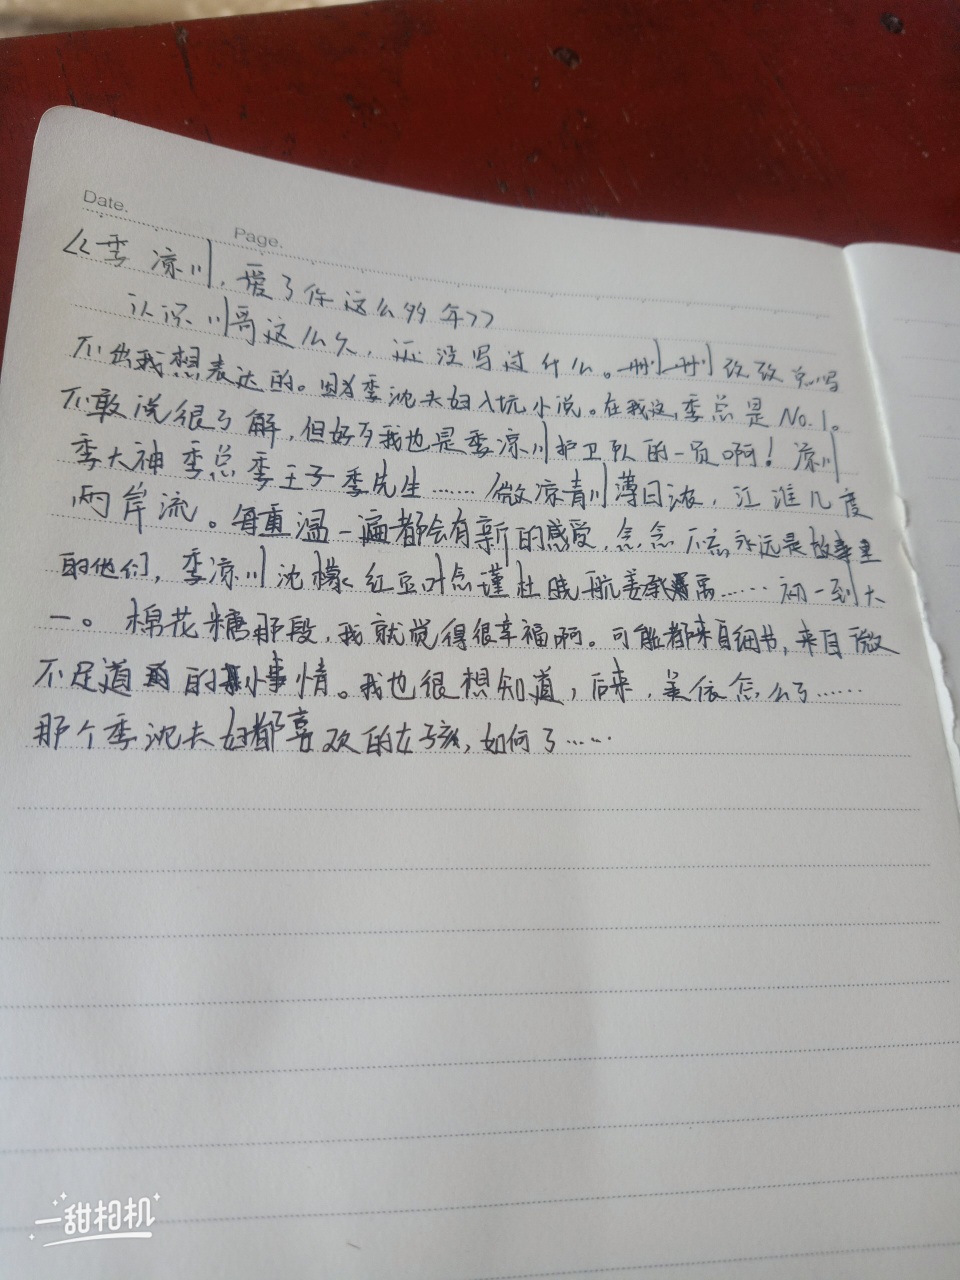 Date.
Page.
《季凉川，爱了你这么多年》
认识川哥这么久，还没写过什么。删删改改总写
不出我想表达的。因为季沈夫妇入坑小说。在我这，季总是No.1。
不敢说很了解，但好歹我也是季凉川护卫队的一员啊！凉川
季大神 季总 季王子 季先生……微凉青川薄日浓，江淮几度
两岸流。每重温一遍都会有新的感受，念念不忘永远是故事里
的他们，季凉川 沈檬 红豆 叶念瑾 杜晓航 姜 离……初一到大
一。棉花糖那段，我就觉得很幸福啊。可能都来自细节，来自微
不足道的小事情。我也很想知道，后来，姜依怎么了……
那个季沈夫妇都喜欢的女孩，如何了……
一甜相机